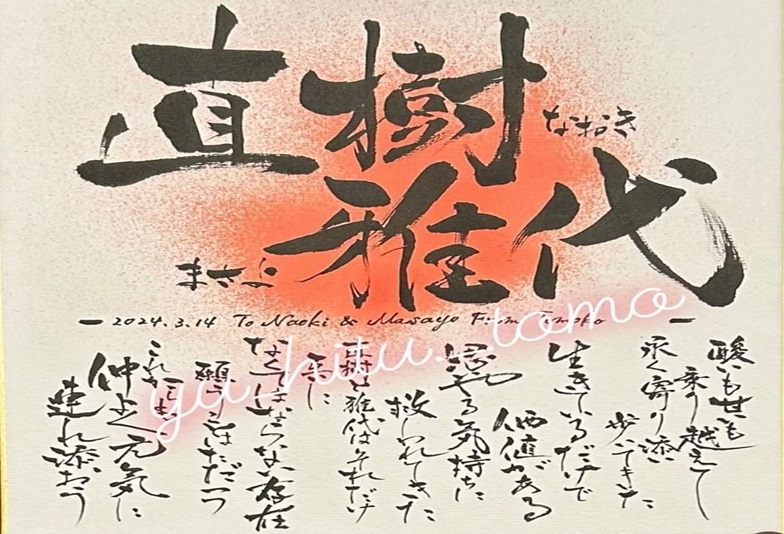 直樹
なおき
雅代
まさよ
2024.3.14 To Naoki & Masayo From Tomoko
酸いも甘いも
乗り越えて
永く寄り添い
歩いてきた
生きているだけで
価値がある
思いやる気持ちに
救われてきた
直樹と雅代はそれだけ
互いに
なくてはならない存在
願うことはただ一つ
これからも
仲よく元気に
連れ添おう